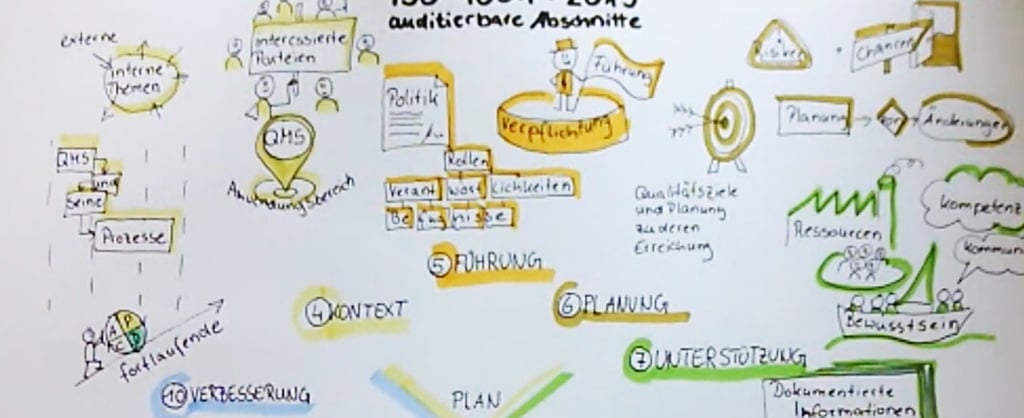 auditierbare Abschnitte
externe
interne
Themen
Interessierte
Parteien
QMS
Anwendungsbereich
QMS
und
Seine
Prozesse
A P
C D
fortlaufende
Politik
Führung
Verpflichtung
Rollen
Verant wort lichkeiten
Be fug nisse
Risiken
Chancen
Planung
von
Änderungen
Qualitätsziele
und Planung
zu deren
Erreichung
Ressourcen
Kompetenz
Kommun
Bewusstsein
5 FÜHRUNG
4 KONTEXT
6 PLANUNG
7 UNTERSTÜTZUNG
10 VERBESSERUNG
PLAN
Dokumentierte
Informationen